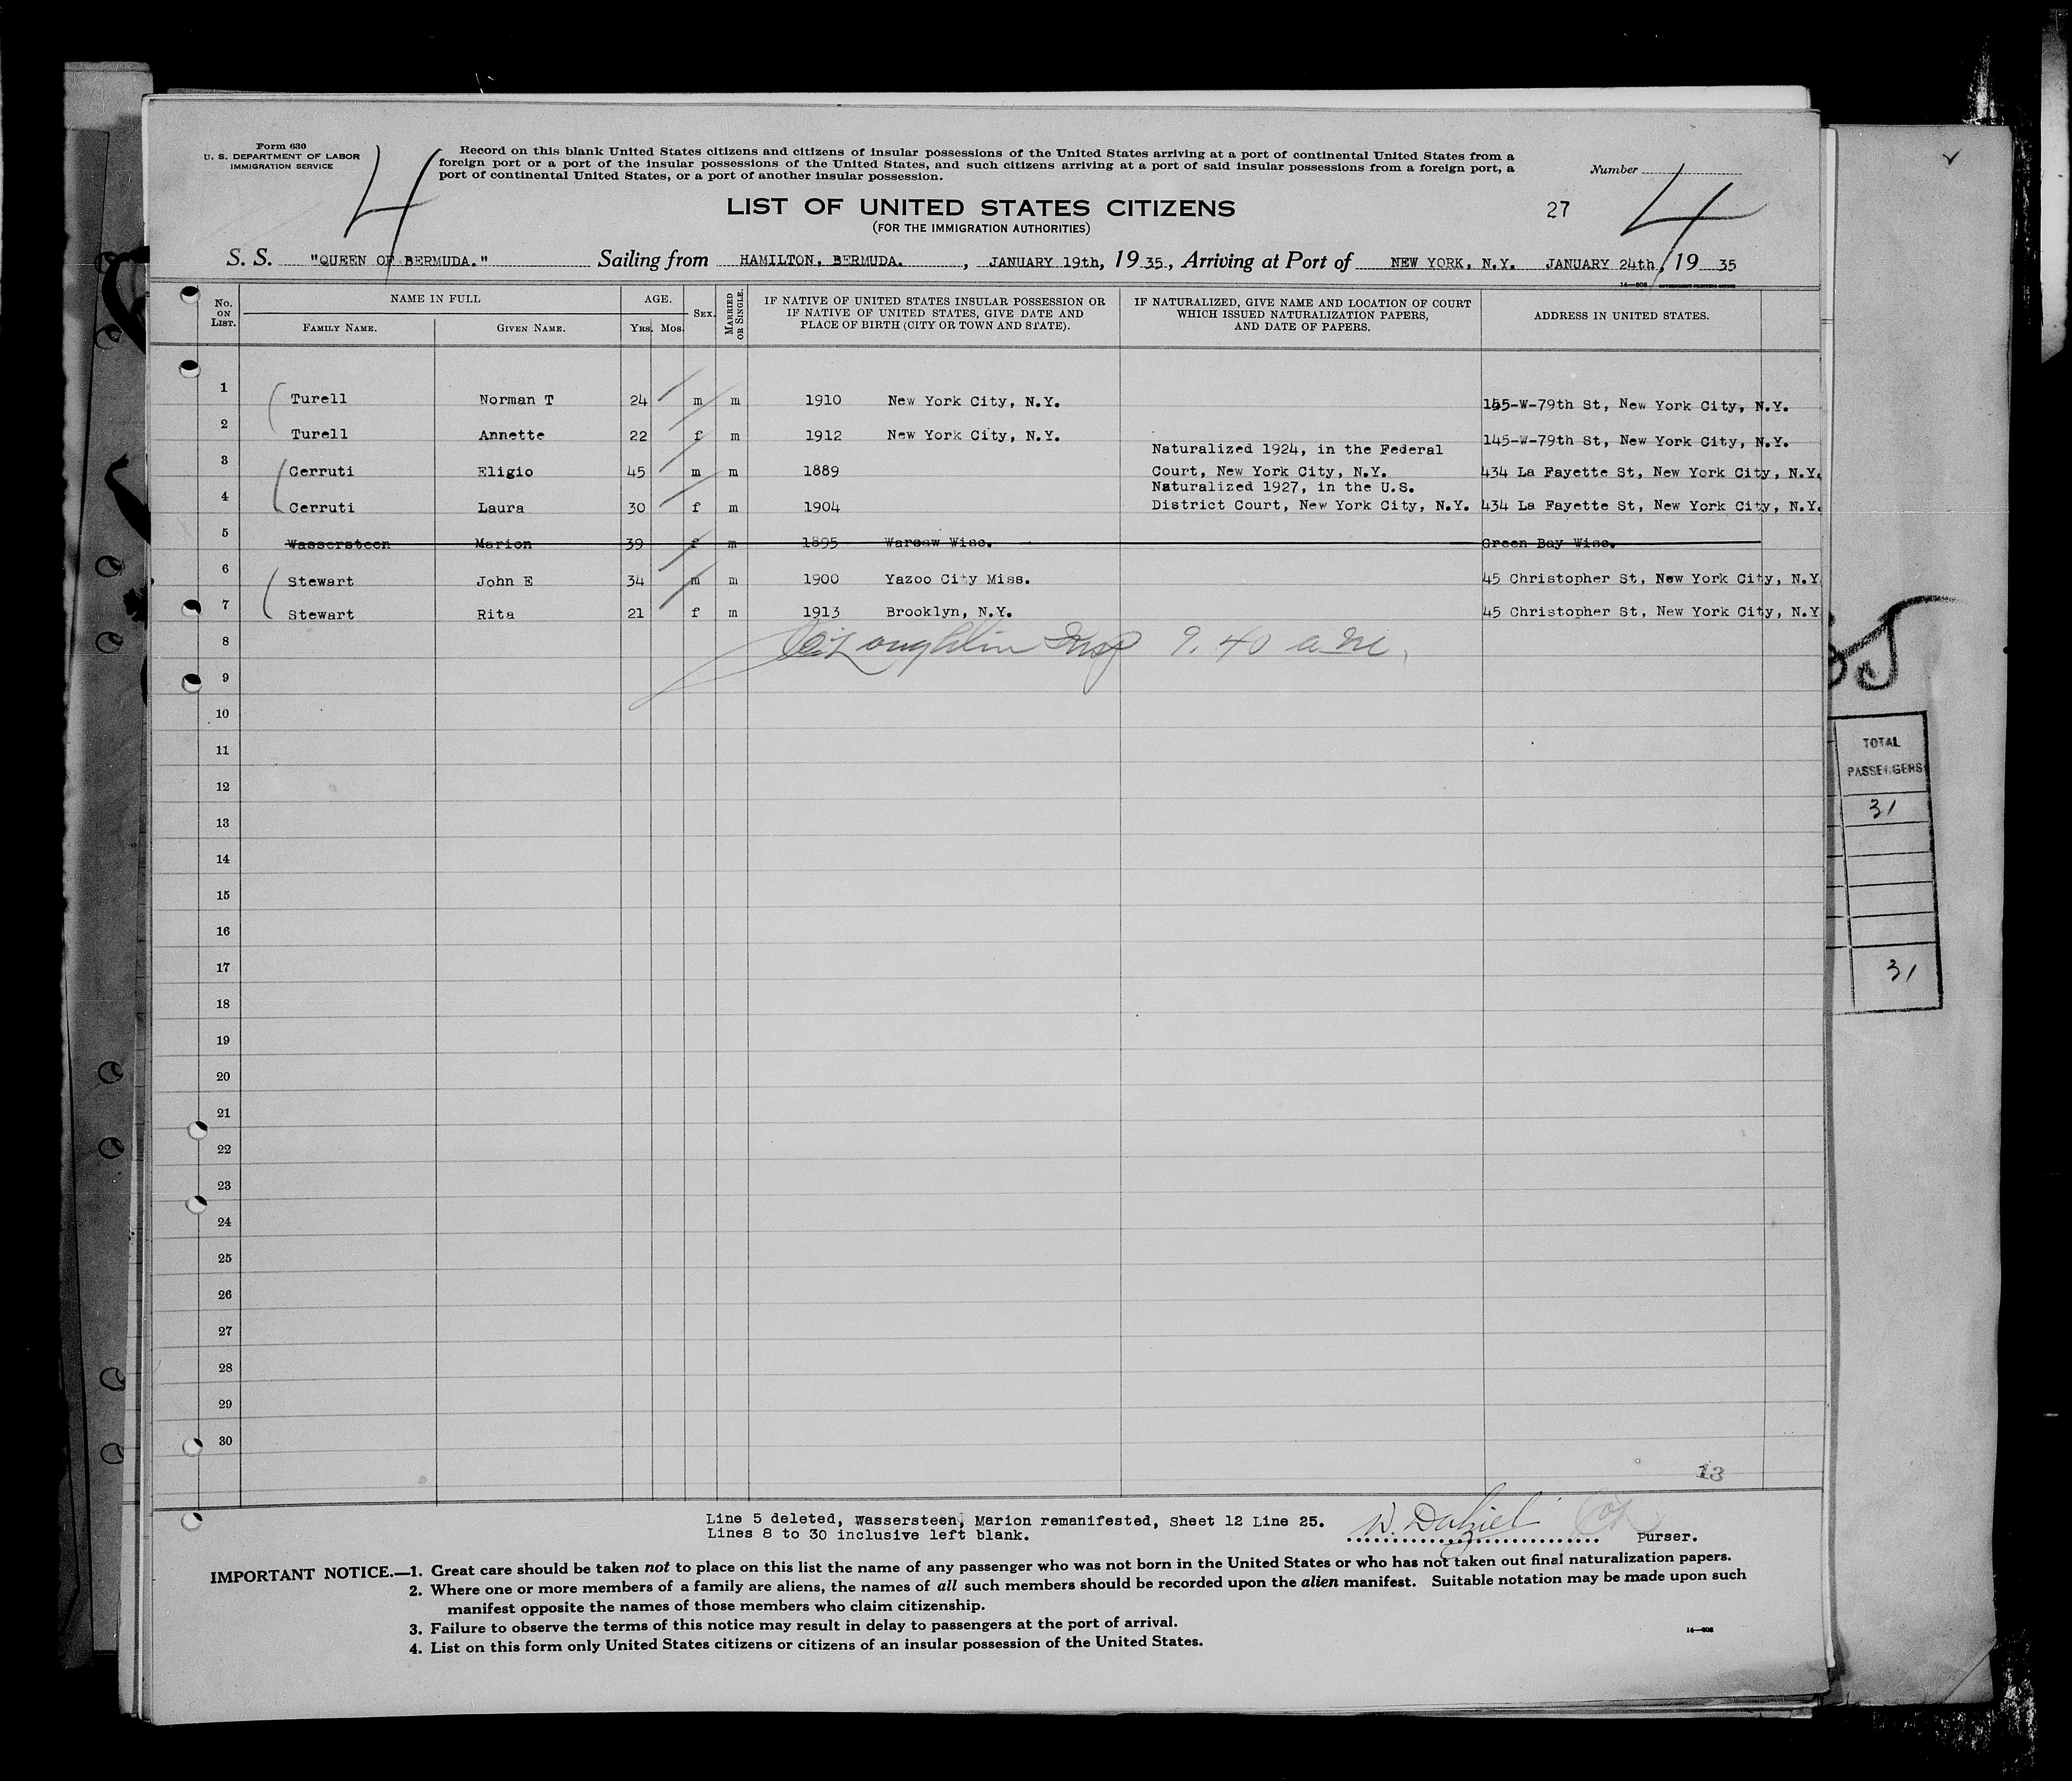 Form 630
U. S. DEPARTMENT OF LABOR
IMMIGRATION SERVICE
4
Record on this blank United States citizens and citizens of insular possessions of the United States arriving at a port of continental United States from a
foreign port or a port of the insular possessions of the United States, and such citizens arriving at a port of said insular possessions from a foreign port, a
port of continental United States, or a port of another insular possession.
Number
4
LIST OF UNITED STATES CITIZENS
27
(FOR THE IMMIGRATION AUTHORITIES)
S. S. "QUEEN OF BERMUDA." Sailing from HAMILTON, BERMUDA. , JANUARY 19th, 1935, Arriving at Port of NEW YORK, N.Y. JANUARY 24th, 19 35
No. ON LIST. NAME IN FULL AGE. SEX. MARRIED OR SINGLE. IF NATIVE OF UNITED STATES INSULAR POSSESSION OR IF NATIVE OF UNITED STATES, GIVE DATE AND PLACE OF BIRTH (CITY OR TOWN AND STATE). IF NATURALIZED, GIVE NAME AND LOCATION OF COURT WHICH ISSUED NATURALIZATION PAPERS, AND DATE OF PAPERS. ADDRESS IN UNITED STATES.
FAMILY NAME. GIVEN NAME. YRS. MOS.
1 Turell Norman T 24 m m 1910 New York City, N.Y. 145-W-79th St, New York City, N.Y.
2 Turell Annette 22 f m 1912 New York City, N.Y. 145-W-79th St, New York City, N.Y.
Naturalized 1924, in the Federal
3 Cerruti Eligio 45 m m 1889 Court, New York City, N.Y. 434 La Fayette St, New York City, N.Y.
Naturalized 1927, in the U.S.
4 Cerruti Laura 30 f m 1904 District Court, New York City, N.Y. 434 La Fayette St, New York City, N.Y.
5 Wassersteen Marion 39 f m 1895 Warsaw Wisc. Green Bay Wisc.
6 Stewart John E 34 m m 1900 Yazoo City Miss. 45 Christopher St, New York City, N.Y
7 Stewart Rita 21 f m 1913 Brooklyn, N.Y. 45 Christopher St, New York City, N.Y
8 Insp 9.40 a.m.
9
10
11
12
13
14
15
16
17
18
19
20
21
22
23
24
25
26
27
28
29
30
13
Line 5 deleted, Wassersteen, Marion remanifested, Sheet 12 Line 25.
Lines 8 to 30 inclusive left blank.
W. Dalziel
Purser.
IMPORTANT NOTICE.—1. Great care should be taken not to place on this list the name of any passenger who was not born in the United States or who has not taken out final naturalization papers.
2. Where one or more members of a family are aliens, the names of all such members should be recorded upon the alien manifest. Suitable notation may be made upon such
manifest opposite the names of those members who claim citizenship.
3. Failure to observe the terms of this notice may result in delay to passengers at the port of arrival.
4. List on this form only United States citizens or citizens of an insular possession of the United States.
14—608
TOTAL
PASSENGERS
31
31